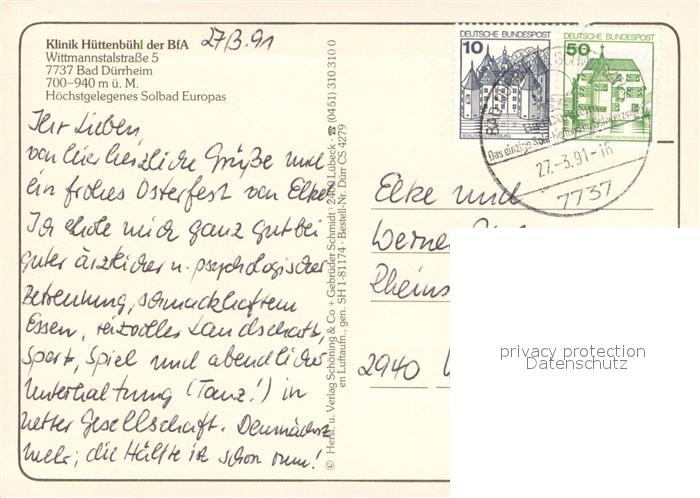 Klinik Hüttenbühl der BfA
Wittmannstalstraße 5
7737 Bad Dürrheim
700–940 m ü. M.
Höchstgelegenes Solbad Europas
27/3.91
Ihr Lieben,
von hier herzliche Grüße und
ein frohes Osterfest von Elke.
Ich erhole mich ganz gut bei
guter ärztlicher u. psychologischer
Betreuung, schmackhaftem
Essen, reizvoller Landschaft,
Sport, Spiel und abendlicher
Unterhaltung (Tanz!) in
netter Gesellschaft. Demnächst
mehr; die Hälfte ist schon rum!
© Herst. u. Verlag Schöning & Co + Gebrüder Schmidt · 2400 Lübeck · ☎ (0451) 310 310 0
en Luftaufn., gen. SH 1-81174 · Bestell-Nr. Dürr CS 4279
DEUTSCHE BUNDESPOST
10
DEUTSCHE BUNDESPOST
50
27.-3.91-16
7737
Elke und
Werner
Rheins
2940
privacy protection
Datenschutz